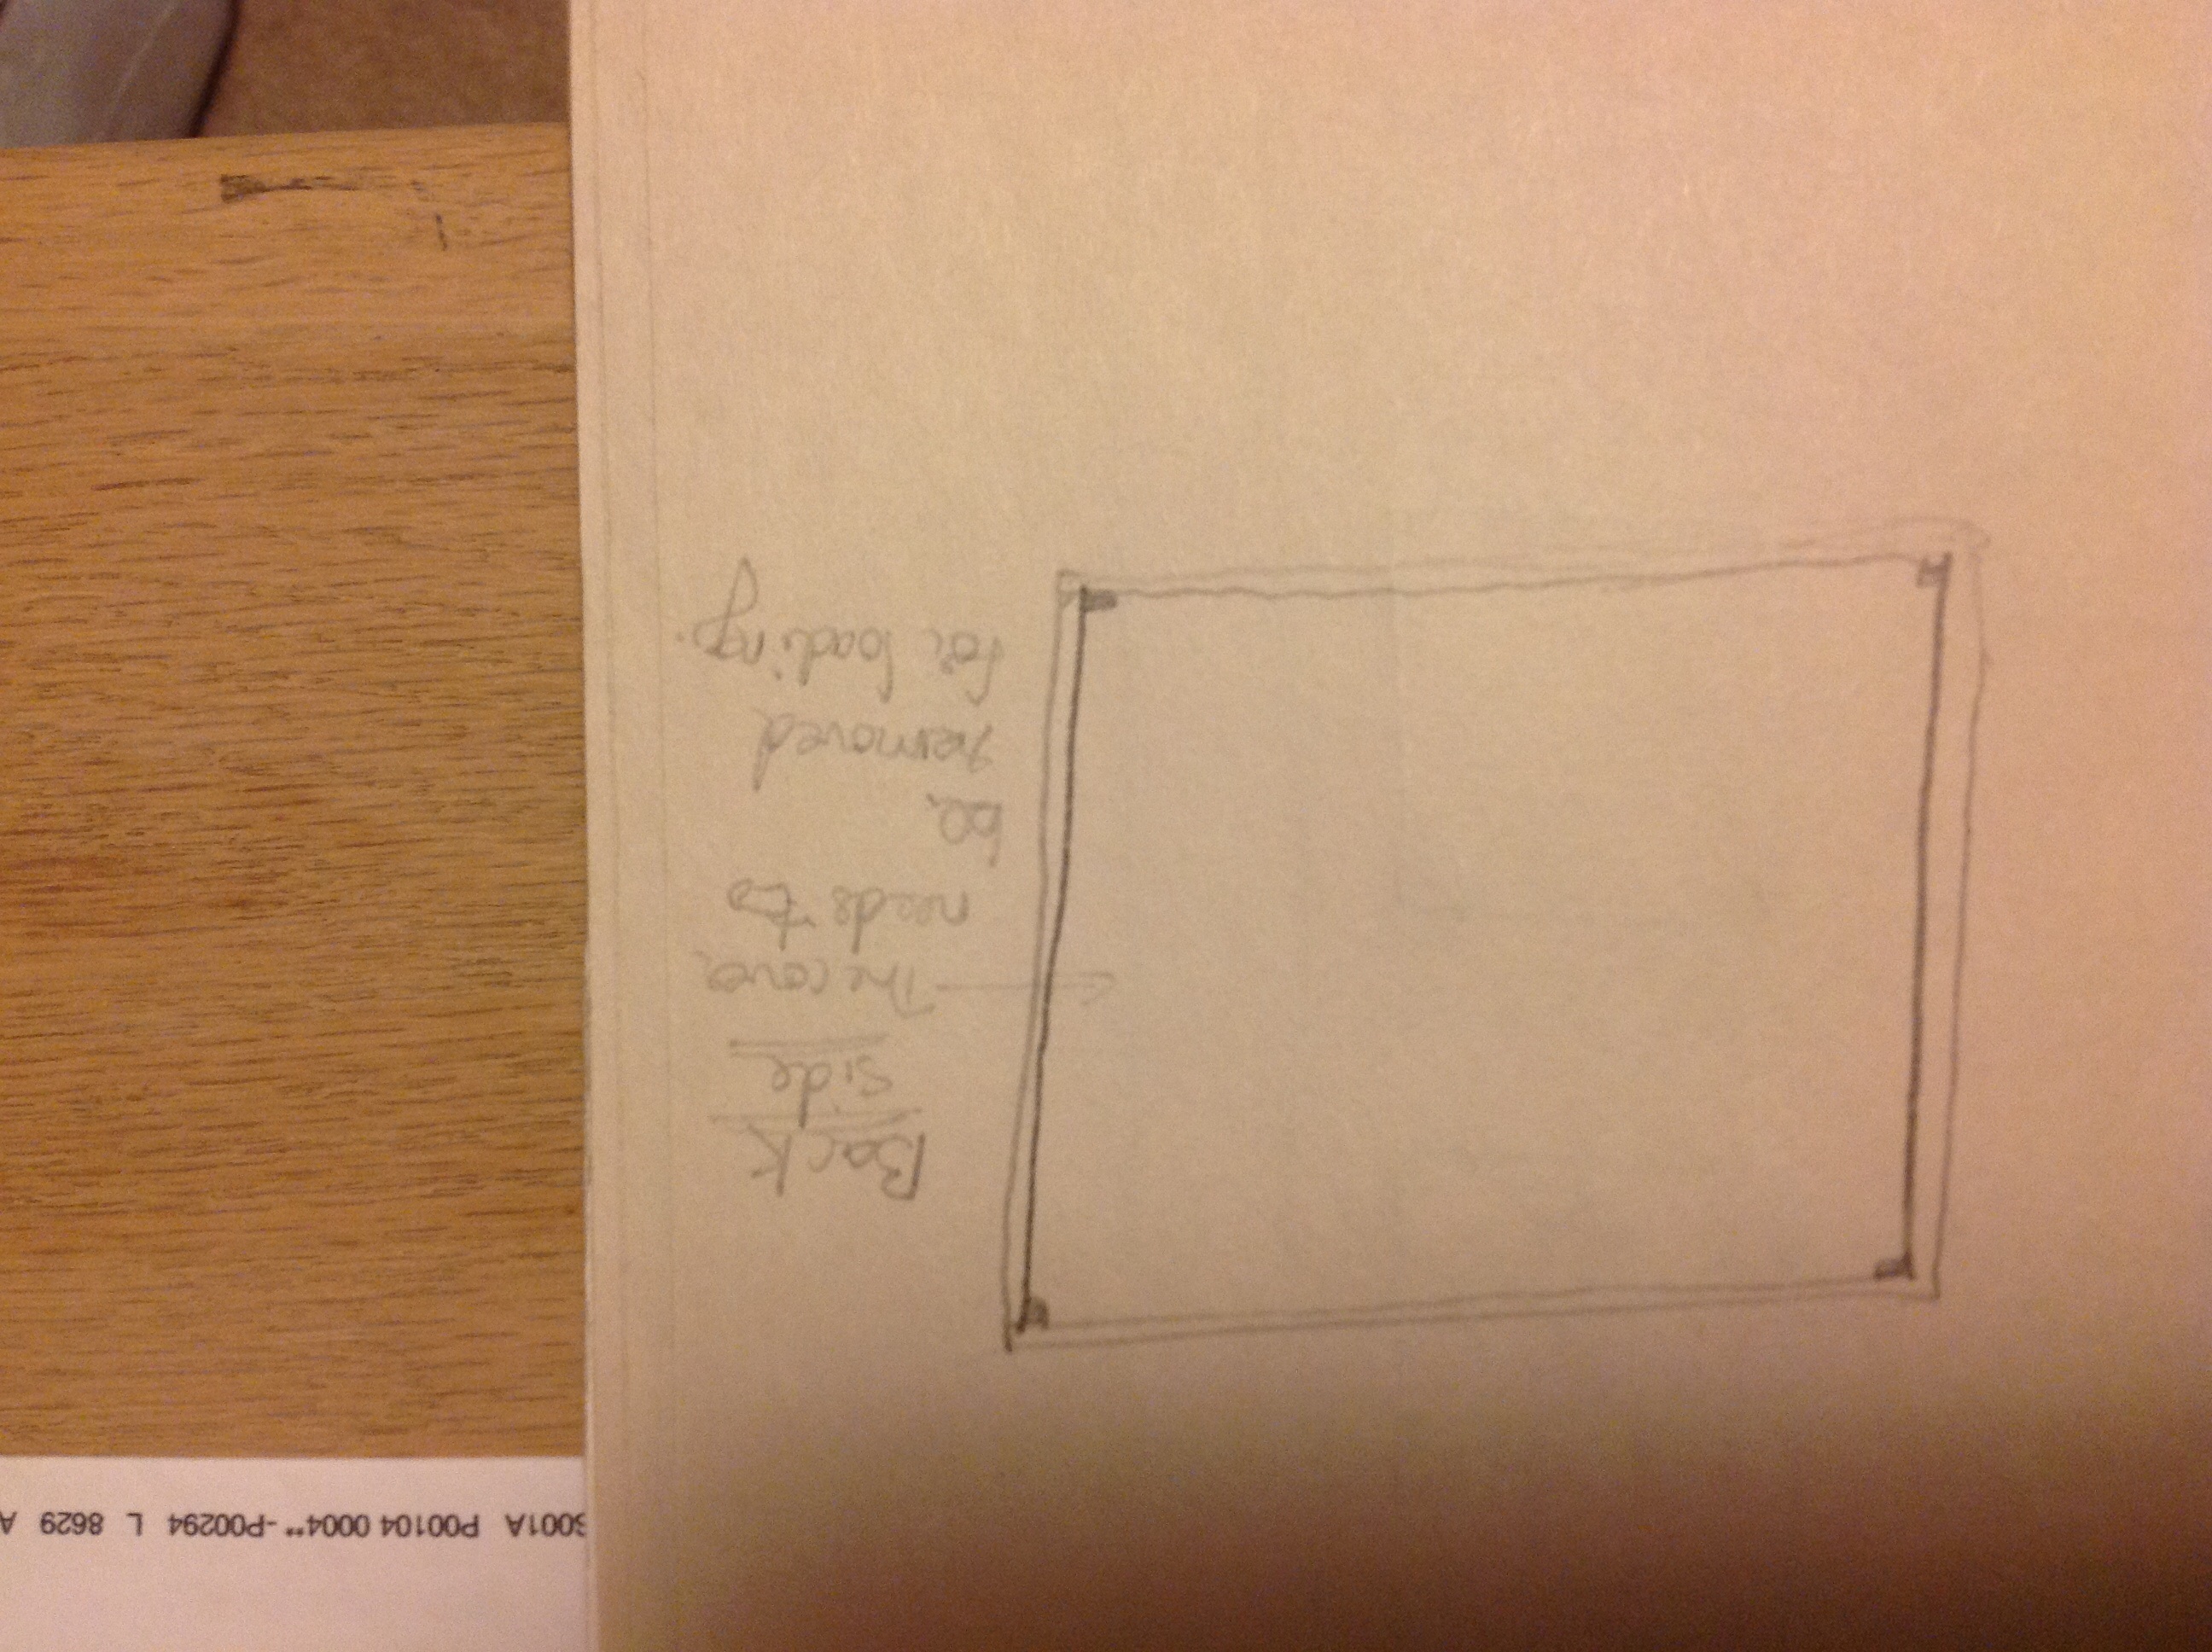 S001A P00104 0004** -P00294 L 8629 A
Back
side
The cover
needs to
be
removed
for loading.